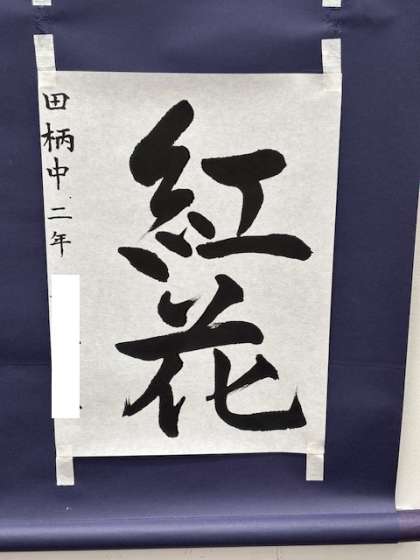 紅花
田柄中二年